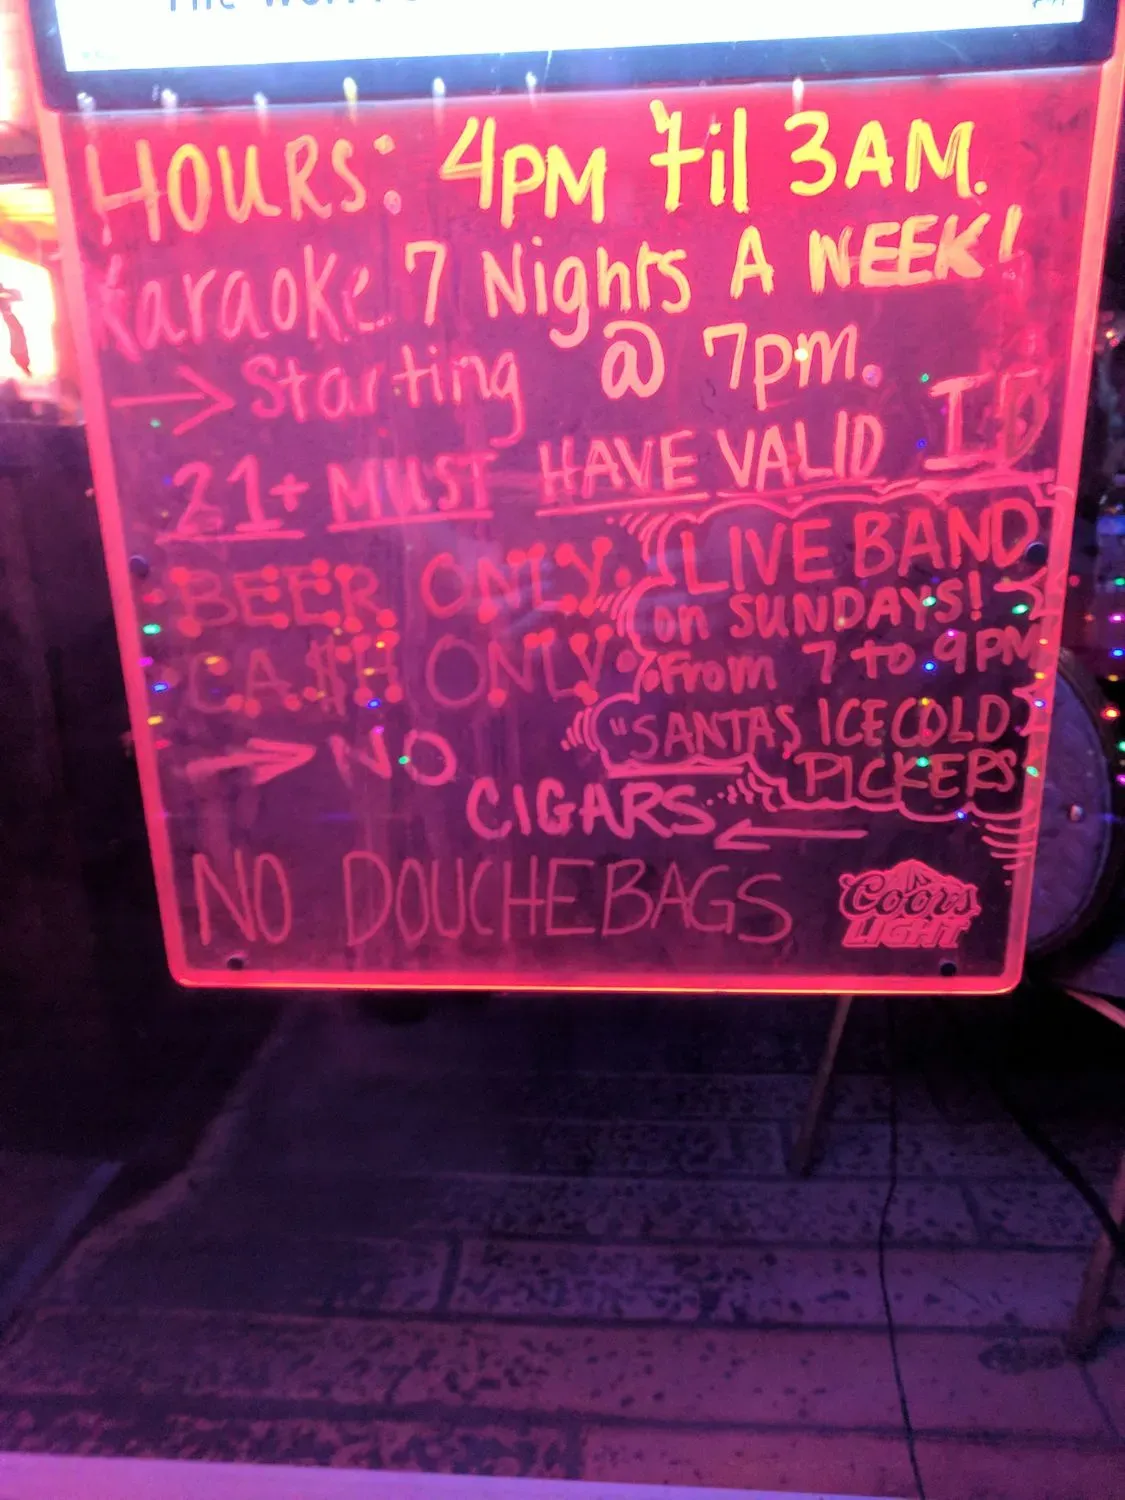 HOURS: 4PM 'til 3AM.
Karaoke 7 Nights A WEEK!
→ Starting @ 7pm.
21+ MUST HAVE VALID ID
BEER ONLY
CA$H ONLY
→ NO
CIGARS ←
LIVE BAND
on SUNDAYS!
From 7 to 9PM
"SANTAS ICE COLD
PICKERS
NO DOUCHEBAGS
Coors
LIGHT